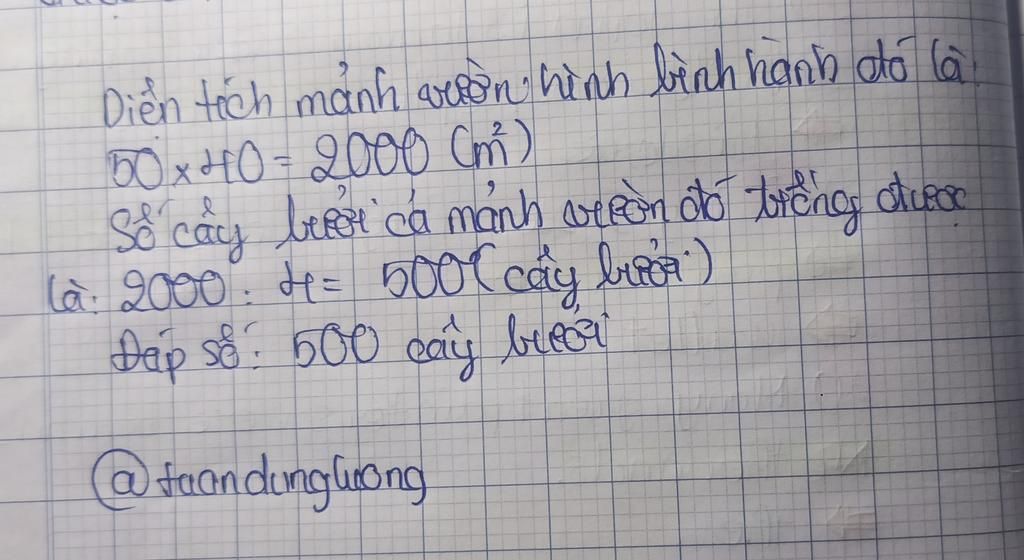 Diện tích mảnh vườn hình bình hành đó là:
50 x 40 = 2000 (m²)
Số cây bưởi cả mảnh vườn đó trồng được
là: 2000 : 4 = 500 (cây bưởi)
Đáp số: 500 cây bưởi
@taandungluong